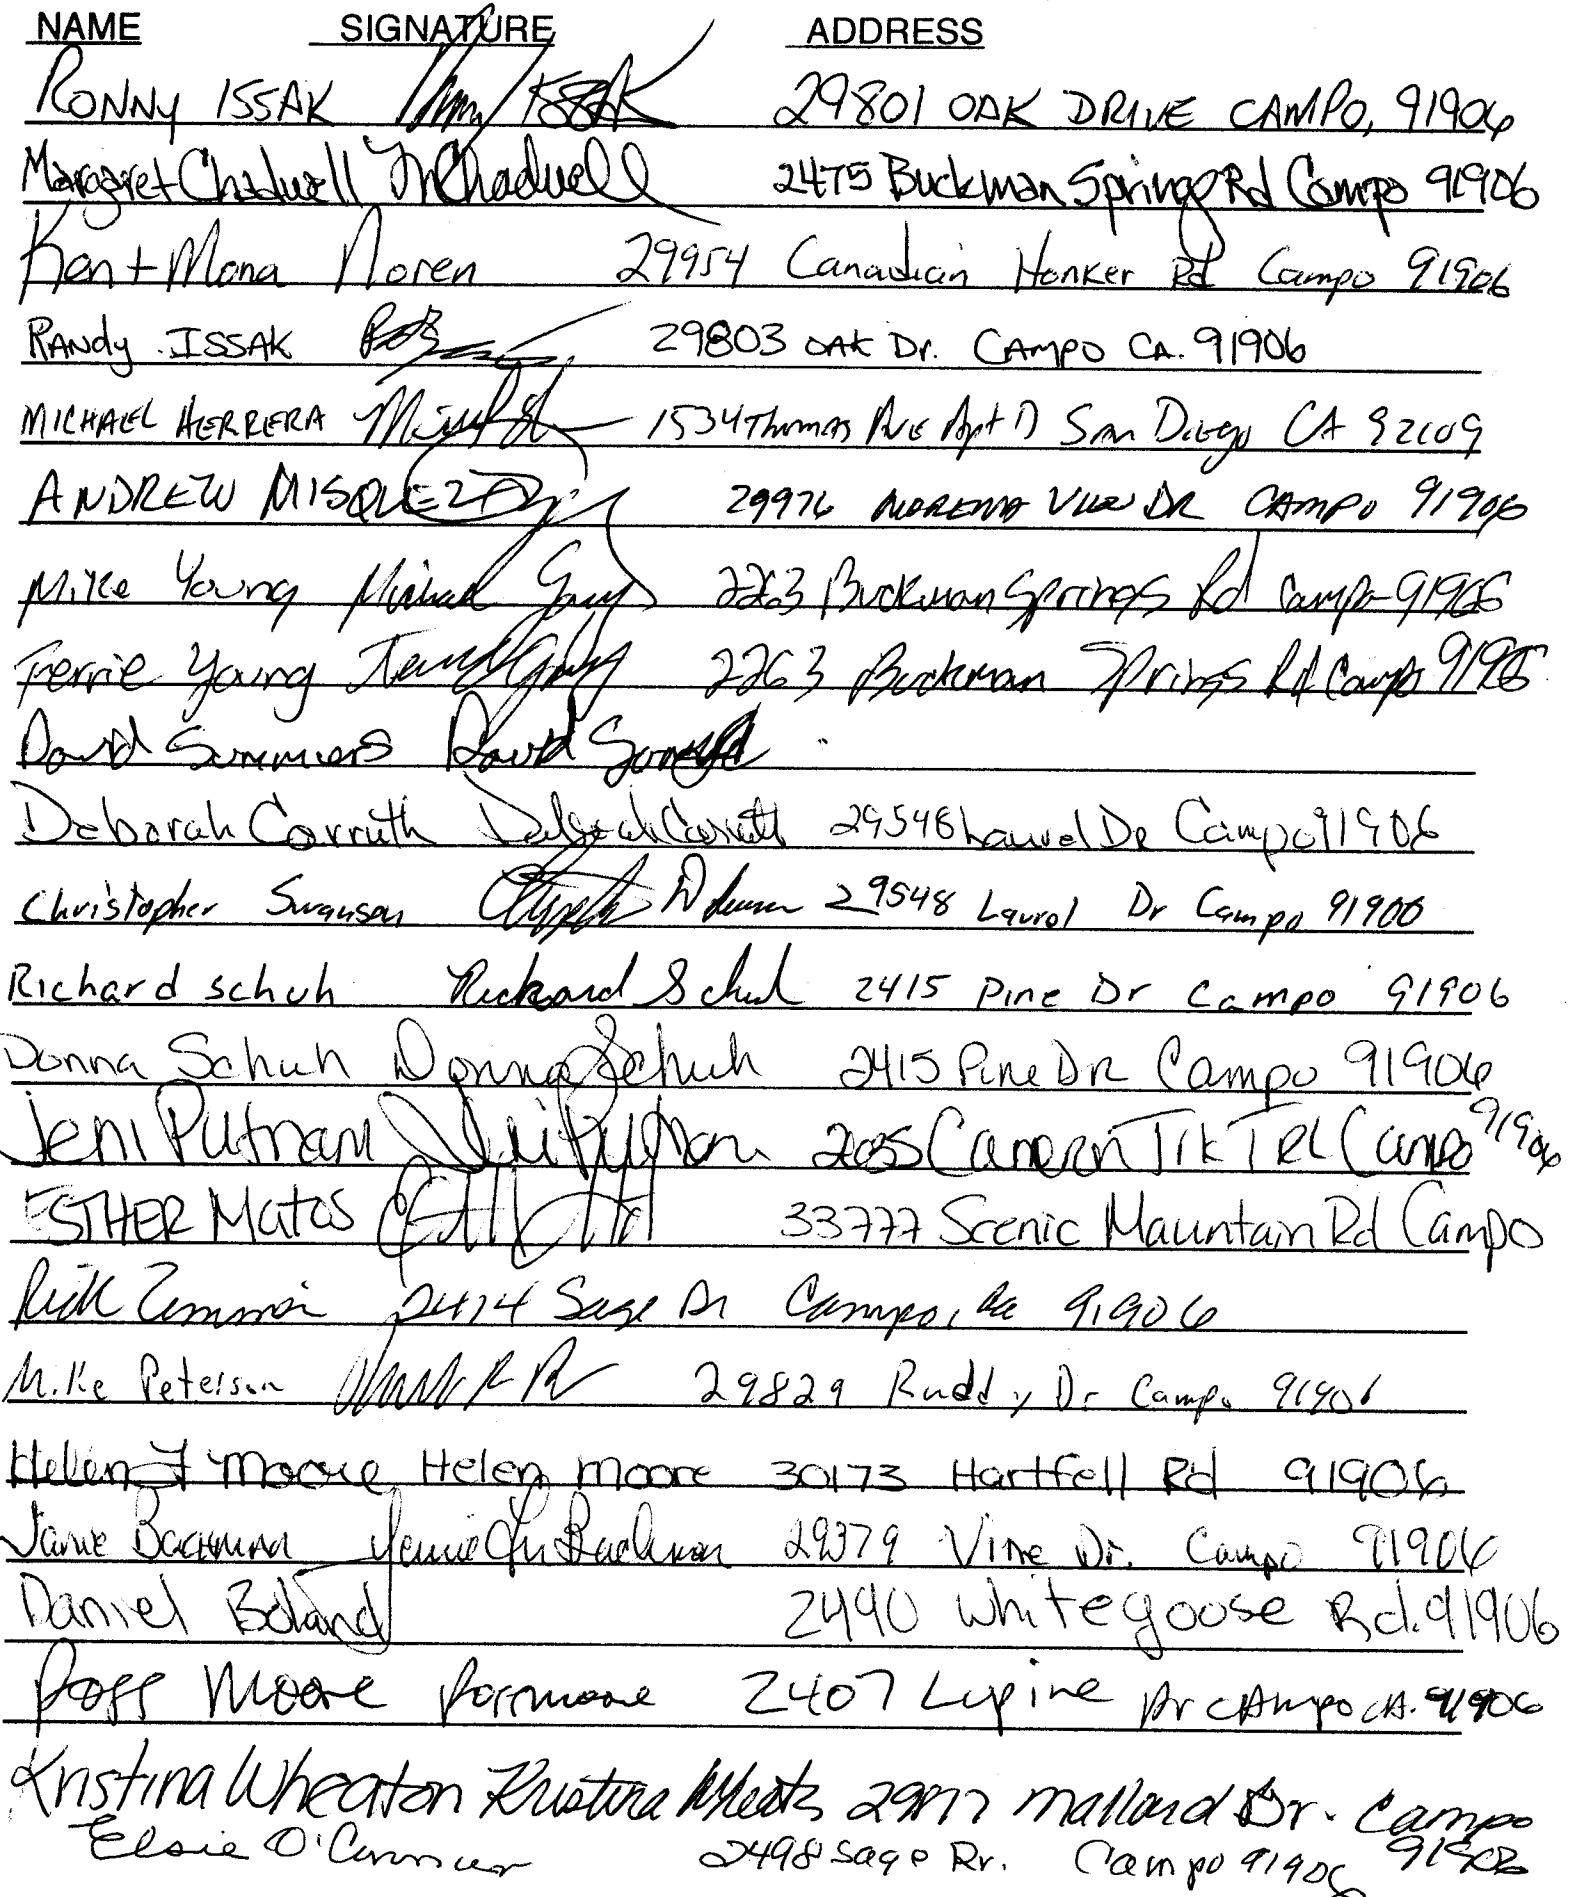 NAME SIGNATURE ADDRESS
RONNY ISSAK ISSAK 29801 OAK DRIVE CAMPO, 91906
Margaret Chadwell M Chadwell 2475 Buckman Springs Rd Campo 91906
Ken + Mona Noren 29954 Canadian Honker Rd Campo 91906
RANDY ISSAK 29803 OAK Dr. CAMPO CA. 91906
MICHAEL HERRERA 1534 Thomas Ave Apt D San Diego CA 92109
ANDREW MISQUEZ 29976 MORENA VIEW DR CAMPO 91906
Mike Young Michael Young 2263 Buckman Springs Rd Campo 91906
Terrie Young 2263 Buckman Springs Rd Campo 91906
David Summers David
Deborah Corruth Deborah Corruth 29548 Laurel Dr Campo 91906
Christopher Swanson 29548 Laurel Dr Campo 91906
Richard Schuh Richard Schuh 2415 Pine Dr Campo 91906
Donna Schuh Donna Schuh 2415 Pine DR Campo 91906
Jeni Putnam Jeni Putnam Cameron TRK TRL Campo 91906
ESTHER Matos 33777 Scenic Mountain Rd Campo
Rick 2474 Sage Dr Campo, Ca 91906
Mike Peterson 29829 Ruddy Dr Campo 91906
Helen F Moore Helen Moore 30173 Hartfell Rd 91906
Jamie Bachman 29379 Vine Dr. Campo 91906
Daniel Boland 2490 Whitegoose Rd. 91906
Ross Moore Ross Moore 2407 Lupine Dr CAmpo CA. 91906
Kristina Wheaton Kristina Mallard Dr. Campo 91906
Elsie O'Connor 2498 Sage Dr. Campo 91906